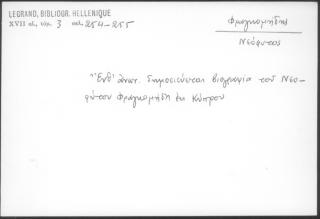 LEGRAND, BIBLIOGR. HELLENIQUE
XVII αἰ, τόμ. 3 σελ. 254-255
Φραγκομήδης
Νεόφυτος
Ἔνθ' ἀνωτ. δημοσιεύεται βιογραφία τοῦ Νεο-
φύτου Φραγκομήδη ἐκ Κύπρου